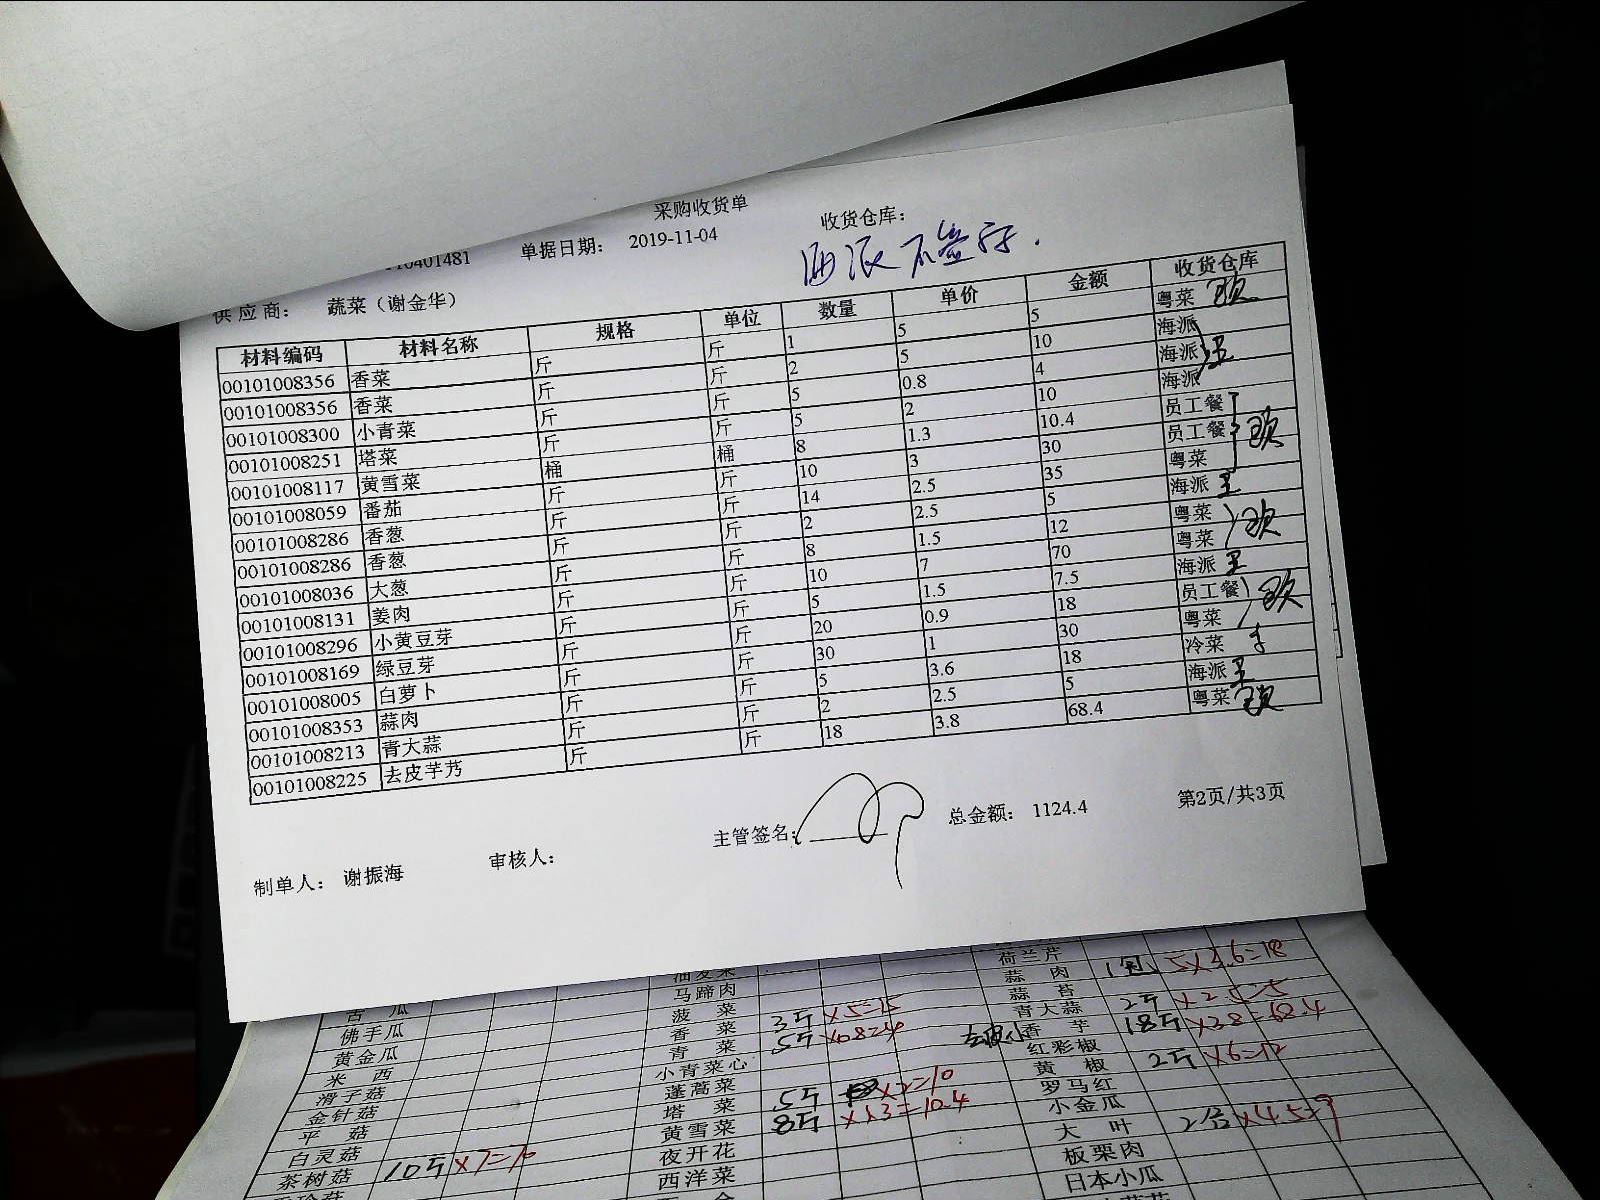 采购收货单
10401481 单据日期： 2019-11-04 收货仓库：
海派不签字.
供应商： 蔬菜（谢金华）
材料编码 材料名称 规格 单位 数量 单价 金额 收货仓库
00101008356 香菜 斤 斤 1 5 5 粤菜
00101008356 香菜 斤 斤 2 5 10 海派
00101008300 小青菜 斤 斤 5 0.8 4 海派
00101008251 塔菜 斤 斤 5 2 10 海派
00101008117 黄雪菜 桶 桶 8 1.3 10.4 员工餐
00101008059 番茄 斤 斤 10 3 30 员工餐
00101008286 香葱 斤 斤 14 2.5 35 粤菜
00101008286 香葱 斤 斤 2 2.5 5 海派 王
00101008036 大葱 斤 斤 8 1.5 12 粤菜
00101008131 姜肉 斤 斤 10 7 70 粤菜
00101008296 小黄豆芽 斤 斤 5 1.5 7.5 海派 王
00101008169 绿豆芽 斤 斤 20 0.9 18 员工餐
00101008005 白萝卜 斤 斤 30 1 30 粤菜
00101008353 蒜肉 斤 斤 5 3.6 18 冷菜
00101008213 青大蒜 斤 斤 2 2.5 5 海派 王
00101008225 去皮芋艿 斤 斤 18 3.8 68.4 粤菜
主管签名： 总金额： 1124.4 第2页/共3页
制单人： 谢振海 审核人：
荷兰芹
马蹄肉 蒜肉 1包 5×3.6=18
菠菜 3斤 ×5=15 蒜苔
佛手瓜 香菜 青大蒜 2斤 ×2.5=5
黄金瓜 青菜 5斤 ×0.8=4 去皮小香芋 18斤 ×3.8=68.4
米西 小青菜心 红彩椒
滑子菇 蓬蒿菜 黄椒 2斤 ×6=12
金针菇 塔菜 5斤 ×2=10 罗马红
平菇 黄雪菜 8斤 ×1.3=10.4 小金瓜
白灵菇 夜开花 大叶 2合 ×4.5=9
茶树菇 10斤 ×7=70 西洋菜 板栗肉
日本小瓜